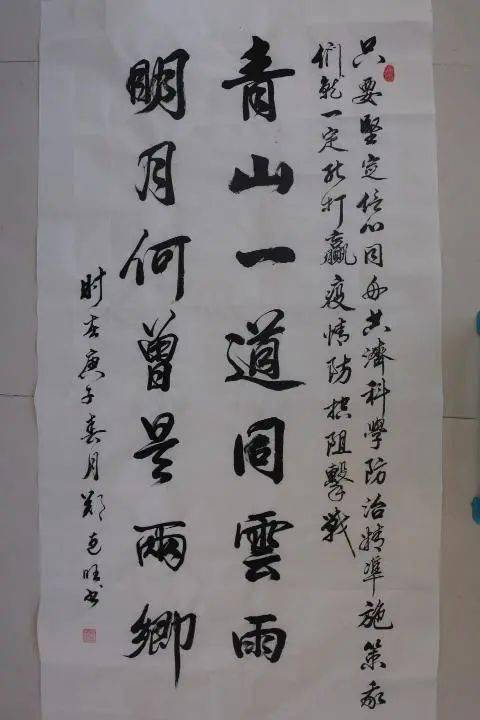 只要堅定信心同舟共濟科學防治精準施策我
們就一定能打贏疫情防控阻擊戰
青山一道同雲雨
明月何曾是兩鄉
時在庚子春月鄭